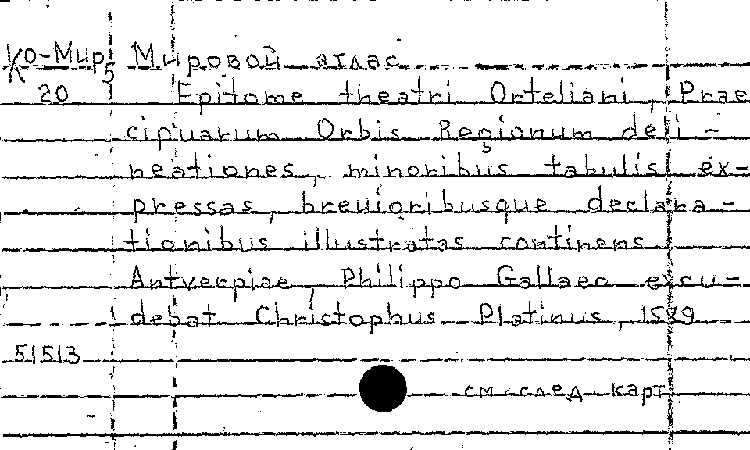 Ко-Мир 5 Мировой атлас
20 Epitome theatri Orteliani, Prae
cipuarum Orbis Regionum deli-
neationes, minoribus tabulis ex-
pressas, breuioribusque declara-
tionibus illustratas continens.
Antverpiae, Philippo Gallaeo excu-
debat Christophus Platinus, 1589
51513
см след карт